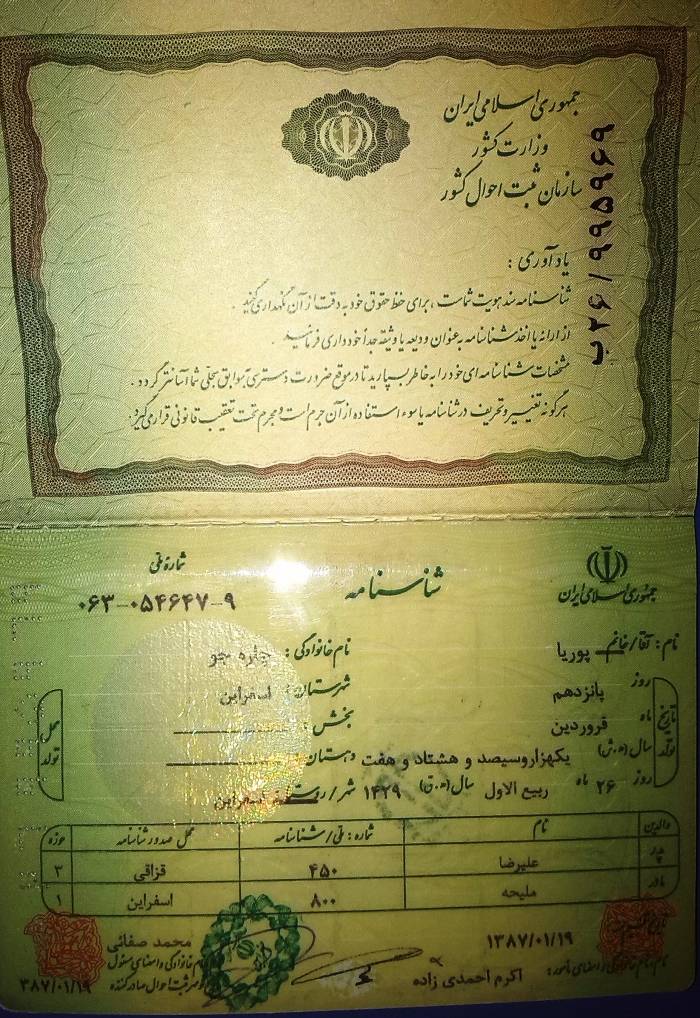 جمهوری اسلامی ایران
وزارت کشور
سازمان ثبت احوال کشور
ب۲۶/۹۹۵۹۶۹
یادآوری :
شناسنامه سند هویت شماست ، برای حفظ حقوق خود به دقت از آن نگهداری کنید .
از ارائه یا اخذ شناسنامه به عنوان ودیعه یا وثیقه جداً خودداری فرمائید .
مشخصات شناسنامه ای خود را به خاطر بسپارید تا در موقع ضرورت دسترسی به سوابق سجلی شما آسانتر گردد .
هرگونه تغییر و تحریف در شناسنامه یا سوء استفاده از آن جرم است و مجرم تحت تعقیب قانونی قرار می گیرد .
جمهوری اسلامی ایران
شناسنامه
شماره ملی
۰۶۳-۰۵۴۶۴۷-۹
نام : آقا/خانم پوریا
نام خانوادگی : چاره جو
تاریخ تولد
روز پانزدهم
ماه فروردین
سال (ه.ش) یکهزاروسیصد و هشتاد و هفت
روز ۲۶ ماه ربیع الاول سال (ه.ق) ۱۴۲۹
محل تولد
شهرستان : اسفراین
بخش :
دهستان :
شهر / روستا اسفراین
والدین نام شماره : ملی/شناسنامه محل صدور شناسنامه حوزه
پدر علیرضا ۴۵۰ قزاقی ۳
مادر ملیحه ۸۰۰ اسفراین ۱
۱۳۸۷/۰۱/۱۹
نام ، نام خانوادگی و امضای مأمور : اکرم احمدی زاده
محمد صفائی
نام خانوادگی و امضای مسئول
و مهر ثبت احوال صادرکننده
۳۸۷/۰۱/۱۹